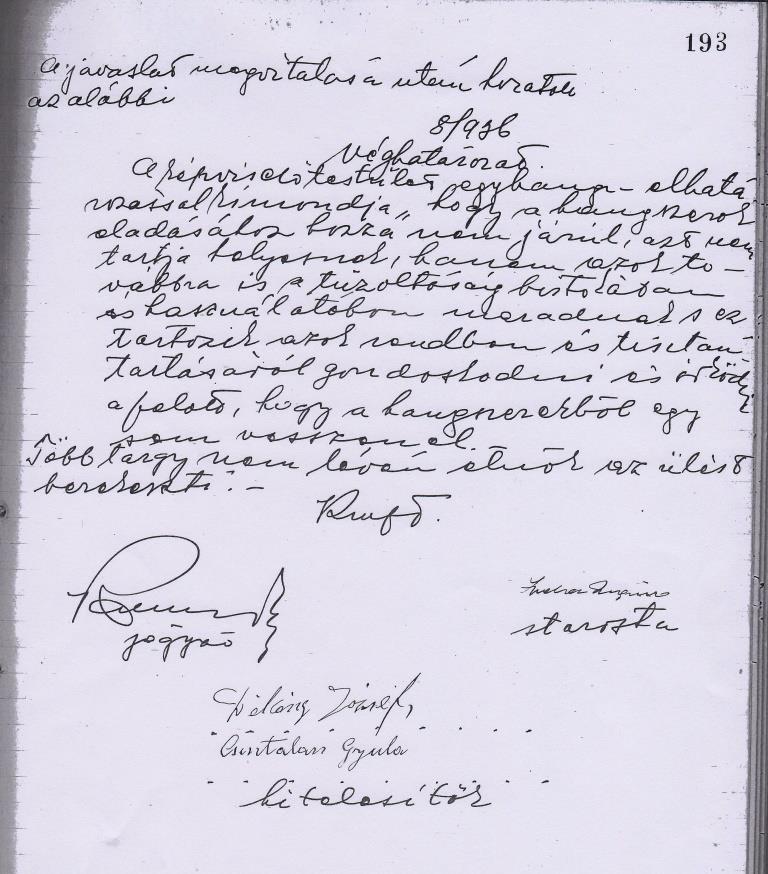 193
A javaslat megvitatása után hozatott
az alábbi
8/936
Véghatározat.
A képviselőtestület egyhang- elhatá
rozással kimondja, hogy a hangszerek
eladásához hozzá nem járul, azt nem
tartja helyesnek, hanem azok to-
vábbra is a tűzoltóság birtokában
és használatában maradnak s ez
tartozik azok rendben és tisztán
tartásáról gondoskodni és őrködni
a felett, hogy a hangszerekből egy
sem vesszen el.
Több tárgy nem lévén elnök az ülést
berekeszti. -
Kmft.
jegyző
starosta
József,
Csintalan Gyula
hitelesítők